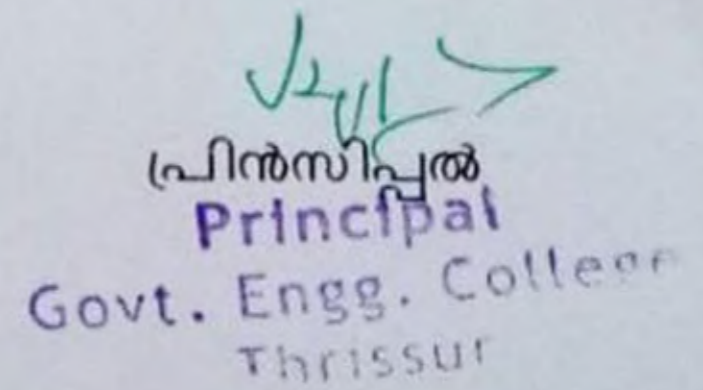 പ്രിൻസിപ്പൽ
Principal
Govt. Engg. College
Thrissur